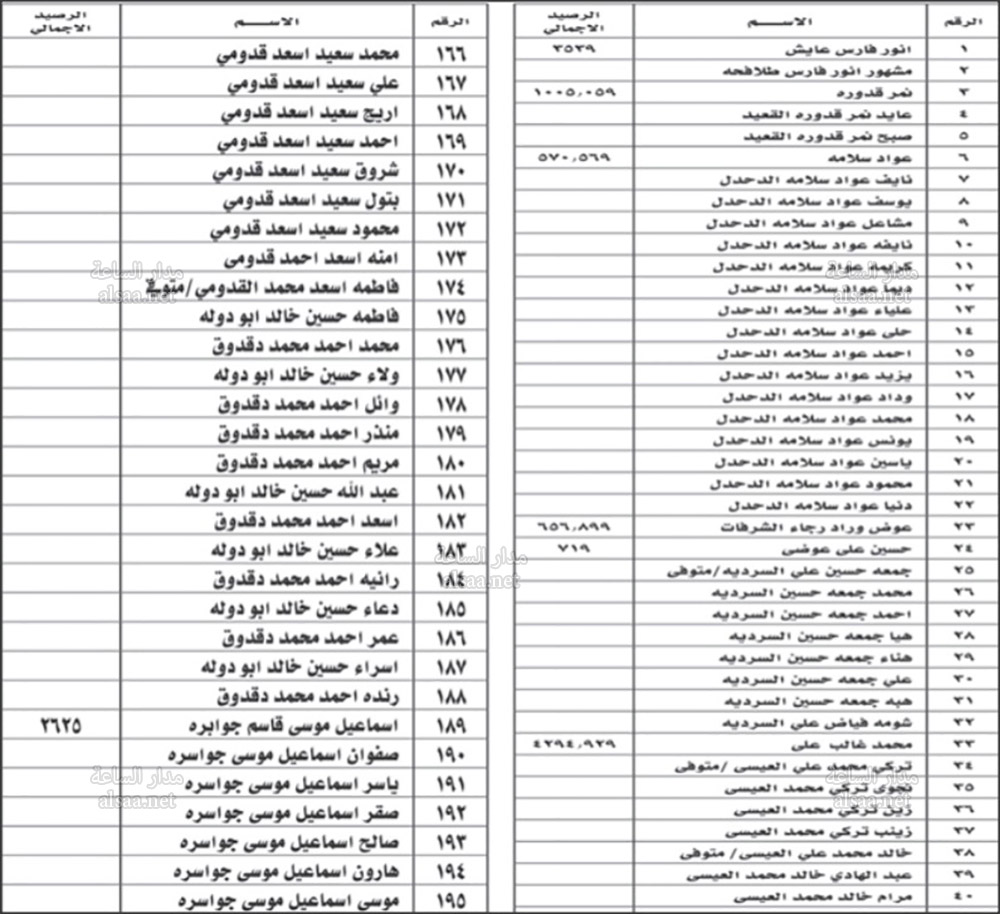 الرقم الاســـــم الرصيد الاجمالي
١ انور فارس عايش ٣٥٣٩
٢ مشهور انور فارس طلافحه
٣ نمر قدوره ١٠٠٥,٠٥٩
٤ عايد نمر قدوره القعيد
٥ صبح نمر قدوره القعيد
٦ عواد سلامه ٥٧٠,٥٦٩
٧ نايف عواد سلامه الدحدل
٨ يوسف عواد سلامه الدحدل
٩ مشاعل عواد سلامه الدحدل
١٠ نايفه عواد سلامه الدحدل
١١ كريمه عواد سلامه الدحدل
١٢ ديما عواد سلامه الدحدل
١٣ علياء عواد سلامه الدحدل
١٤ حلى عواد سلامه الدحدل
١٥ احمد عواد سلامه الدحدل
١٦ يزيد عواد سلامه الدحدل
١٧ وداد عواد سلامه الدحدل
١٨ محمد عواد سلامه الدحدل
١٩ يونس عواد سلامه الدحدل
٢٠ ياسين عواد سلامه الدحدل
٢١ محمود عواد سلامه الدحدل
٢٢ دنيا عواد سلامه الدحدل
٢٣ عوض وراد رجاء الشرفات ٦٥٦,٨٩٩
٢٤ حسين علي عوضي ٧١٩
٢٥ جمعه حسين علي السرديه/متوفى
٢٦ محمد جمعه حسين السرديه
٢٧ احمد جمعه حسين السرديه
٢٨ هيا جمعه حسين السرديه
٢٩ هناء جمعه حسين السرديه
٣٠ علي جمعه حسين السرديه
٣١ هبه جمعه حسين السرديه
٣٢ شومه فياض علي السرديه
٣٣ محمد غالب علي ٤٢٩٤,٩٢٩
٣٤ تركي محمد علي العيسى /متوفى
٣٥ نجوى تركي محمد العيسى
٣٦ زين تركي محمد العيسى
٣٧ زينب تركي محمد العيسى
٣٨ خالد محمد علي العيسى/ متوفى
٣٩ عبد الهادي خالد محمد العيسى
٤٠ مرام خالد محمد العيسى
الرقم الاســـــم الرصيد الاجمالي
١٦٦ محمد سعيد اسعد قدومي
١٦٧ علي سعيد اسعد قدومي
١٦٨ اريج سعيد اسعد قدومي
١٦٩ احمد سعيد اسعد قدومي
١٧٠ شروق سعيد اسعد قدومي
١٧١ بتول سعيد اسعد قدومي
١٧٢ محمود سعيد اسعد قدومي
١٧٣ امنه اسعد احمد قدومي
١٧٤ فاطمه اسعد محمد القدومي/متوفي
١٧٥ فاطمه حسين خالد ابو دوله
١٧٦ محمد احمد محمد دقدوق
١٧٧ ولاء حسين خالد ابو دوله
١٧٨ وائل احمد محمد دقدوق
١٧٩ منذر احمد محمد دقدوق
١٨٠ مريم احمد محمد دقدوق
١٨١ عبد الله حسين خالد ابو دوله
١٨٢ اسعد احمد محمد دقدوق
١٨٣ علاء حسين خالد ابو دوله
١٨٤ رانيه احمد محمد دقدوق
١٨٥ دعاء حسين خالد ابو دوله
١٨٦ عمر احمد محمد دقدوق
١٨٧ اسراء حسين خالد ابو دوله
١٨٨ رنده احمد محمد دقدوق
١٨٩ اسماعيل موسى قاسم جوابره ٢٦٢٥
١٩٠ صفوان اسماعيل موسى جواسره
١٩١ ياسر اسماعيل موسى جواسره
١٩٢ صقر اسماعيل موسى جواسره
١٩٣ صالح اسماعيل موسى جواسره
١٩٤ هارون اسماعيل موسى جواسره
١٩٥ موسى اسماعيل موسى جواسره
مدار الساعة
alsaa.net
مدار الساعة
alsaa.net
مدار الساعة
alsaa.net
مدار الساعة
alsaa.net
مدار الساعة
alsaa.net